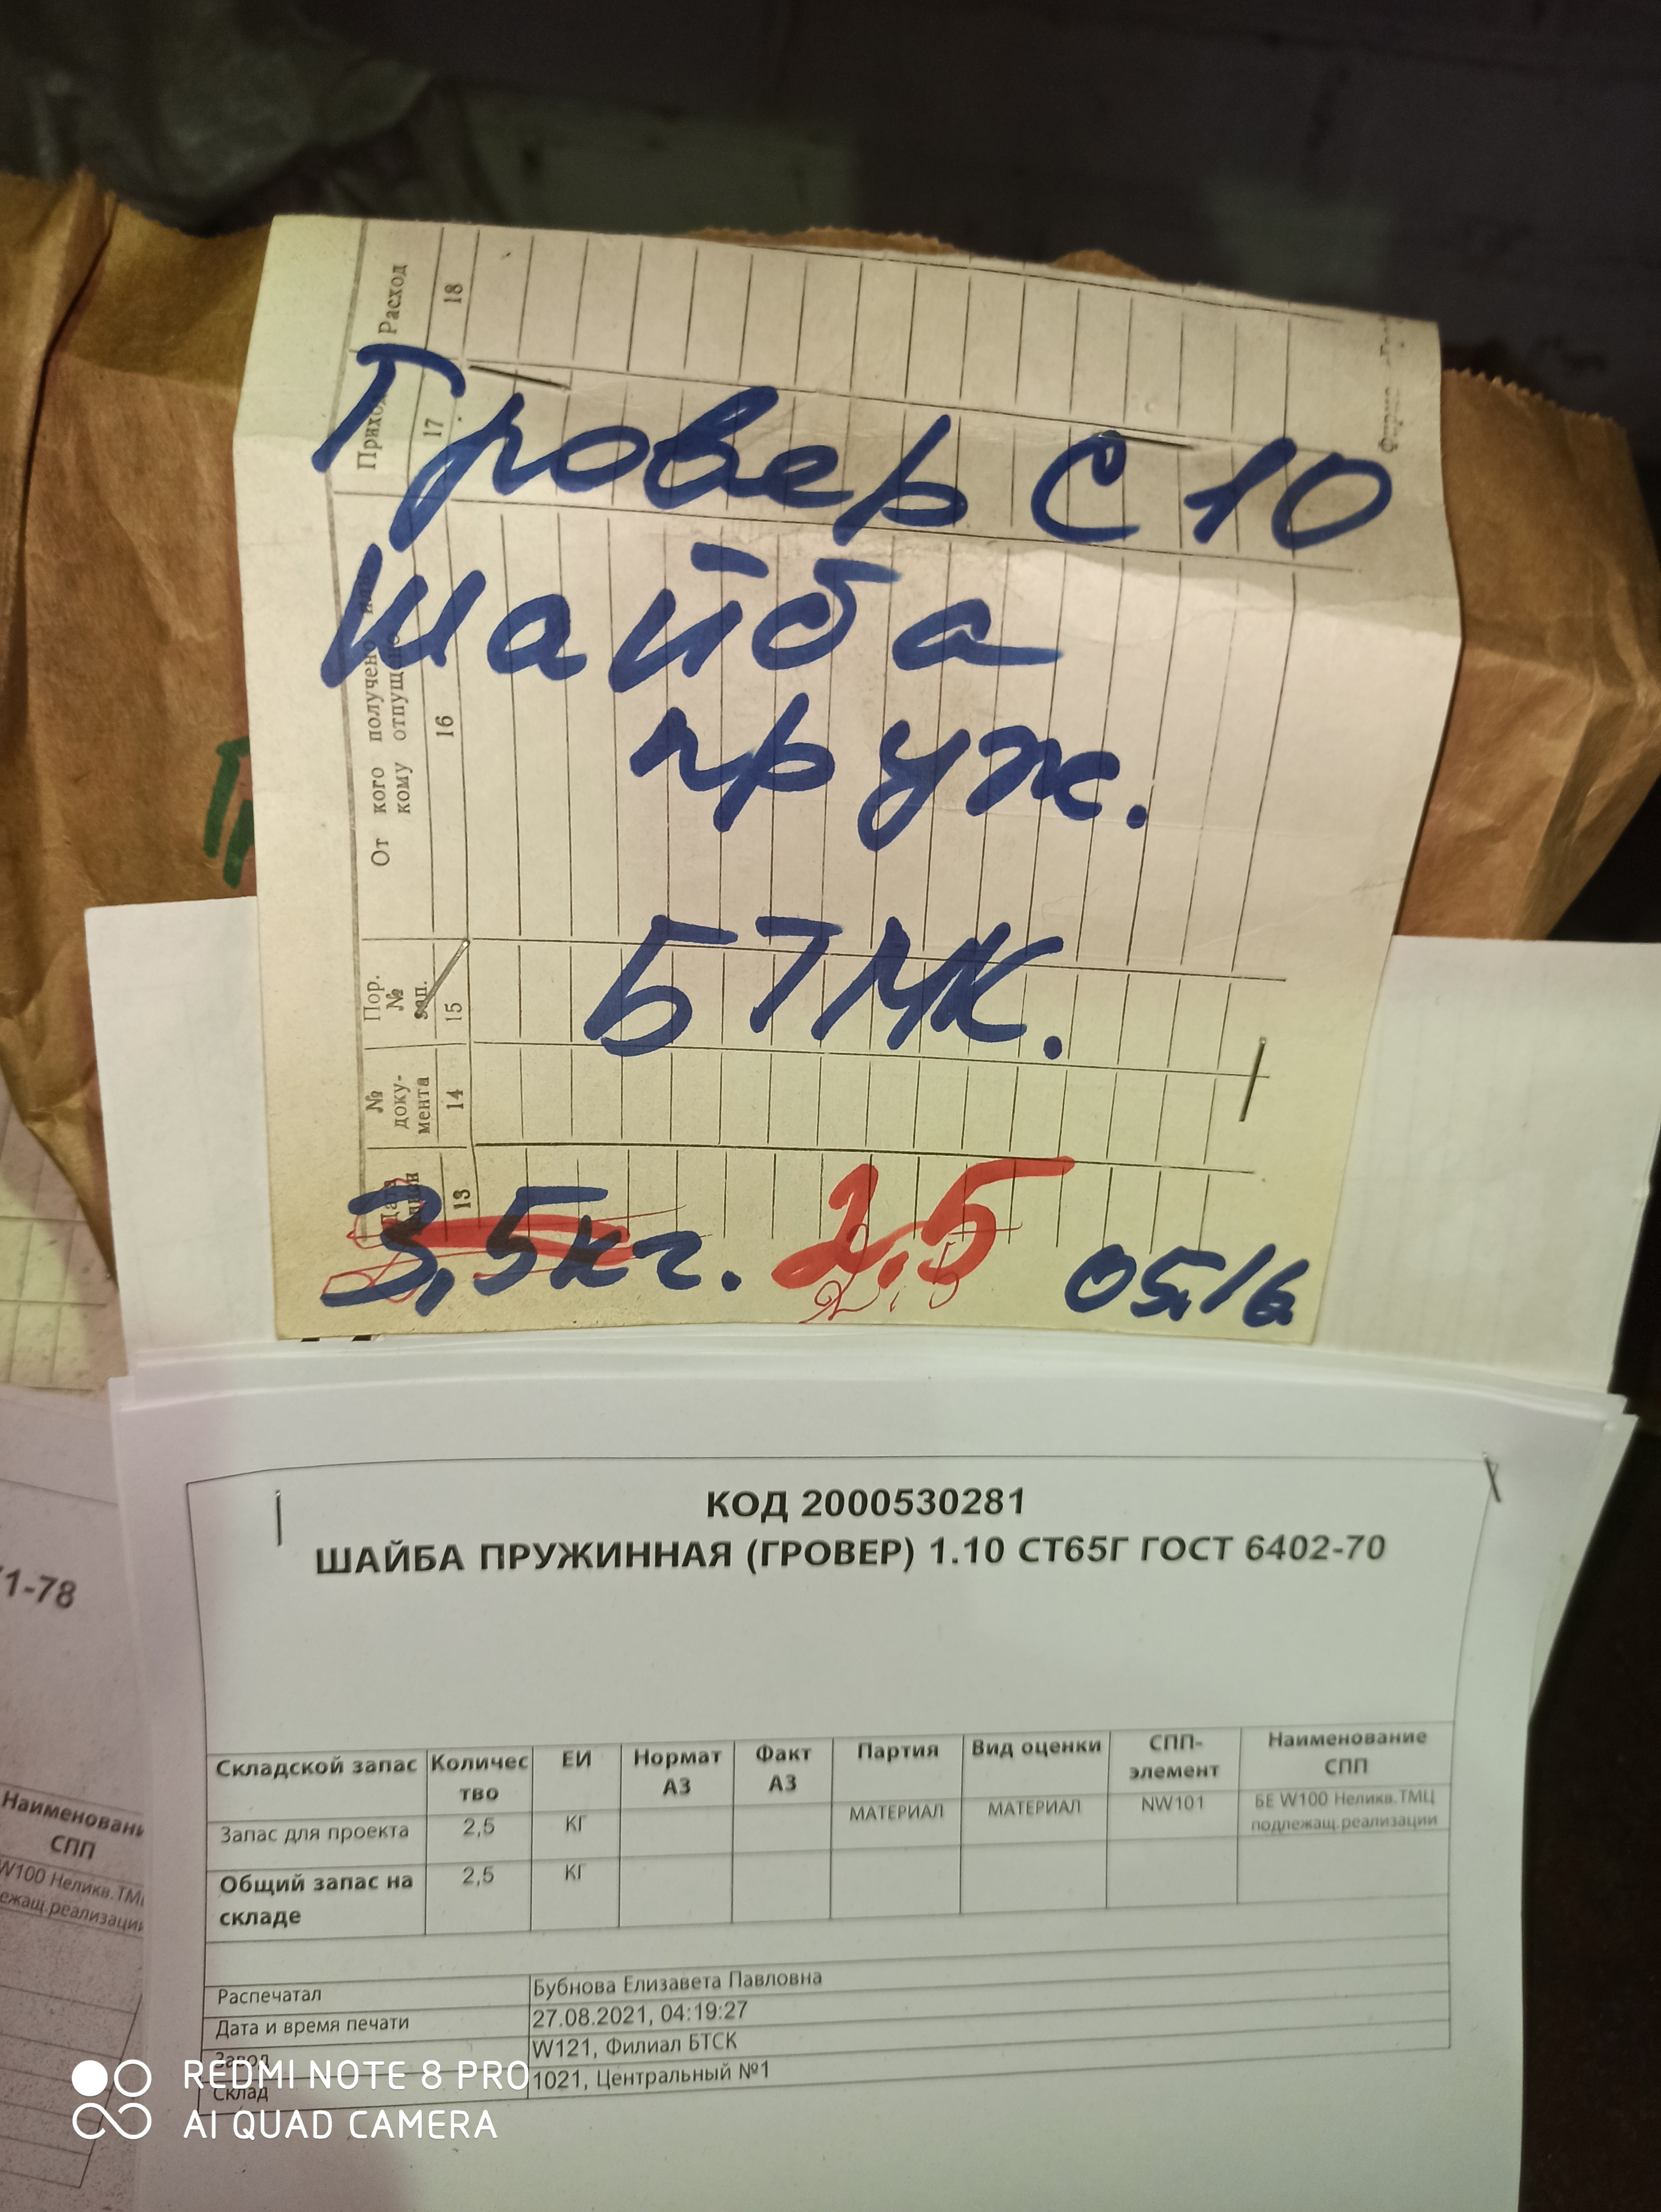 Расход
18
Приход
17
Гровер С 10
Шайба
пруж.
От кого получено
кому отпущено
16
БТМК.
Пор.
№
зап.
15
№
доку-
мента
14
13
3,5кг. 2,5 05.16
2,5
КОД 2000530281
ШАЙБА ПРУЖИННАЯ (ГРОВЕР) 1.10 СТ65Г ГОСТ 6402-70
1-78
Складской запас Количес тво ЕИ Нормат АЗ Факт АЗ Партия Вид оценки СПП-элемент Наименование СПП
Запас для проекта 2,5 КГ МАТЕРИАЛ МАТЕРИАЛ NW101 БЕ W100 Неликв.ТМЦ подлежащ.реализации
Общий запас на складе 2,5 КГ
Распечатал Бубнова Елизавета Павловна
Дата и время печати 27.08.2021, 04:19:27
Завод W121, Филиал БТСК
Склад 1021, Центральный №1
Наименовани
СПП
W100 Неликв.ТМ
ежащ.реализации
REDMI NOTE 8 PRO
AI QUAD CAMERA